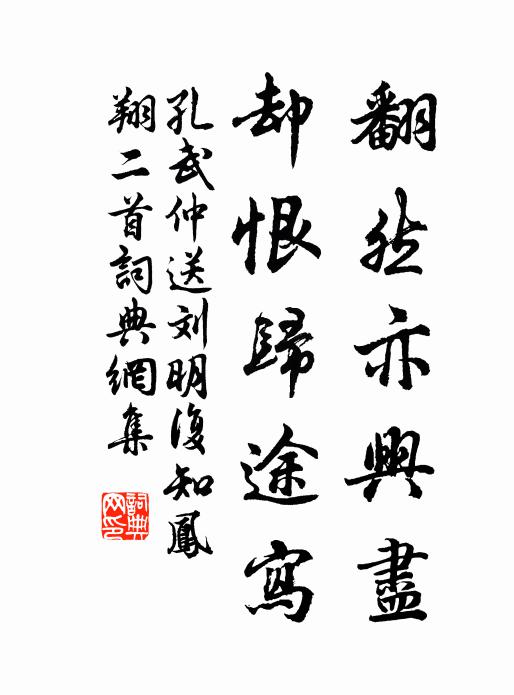 翻然亦興盡
却恨歸途寫
孔武仲送刘明復知鳳
翔二首詞典網集
詞典
网印